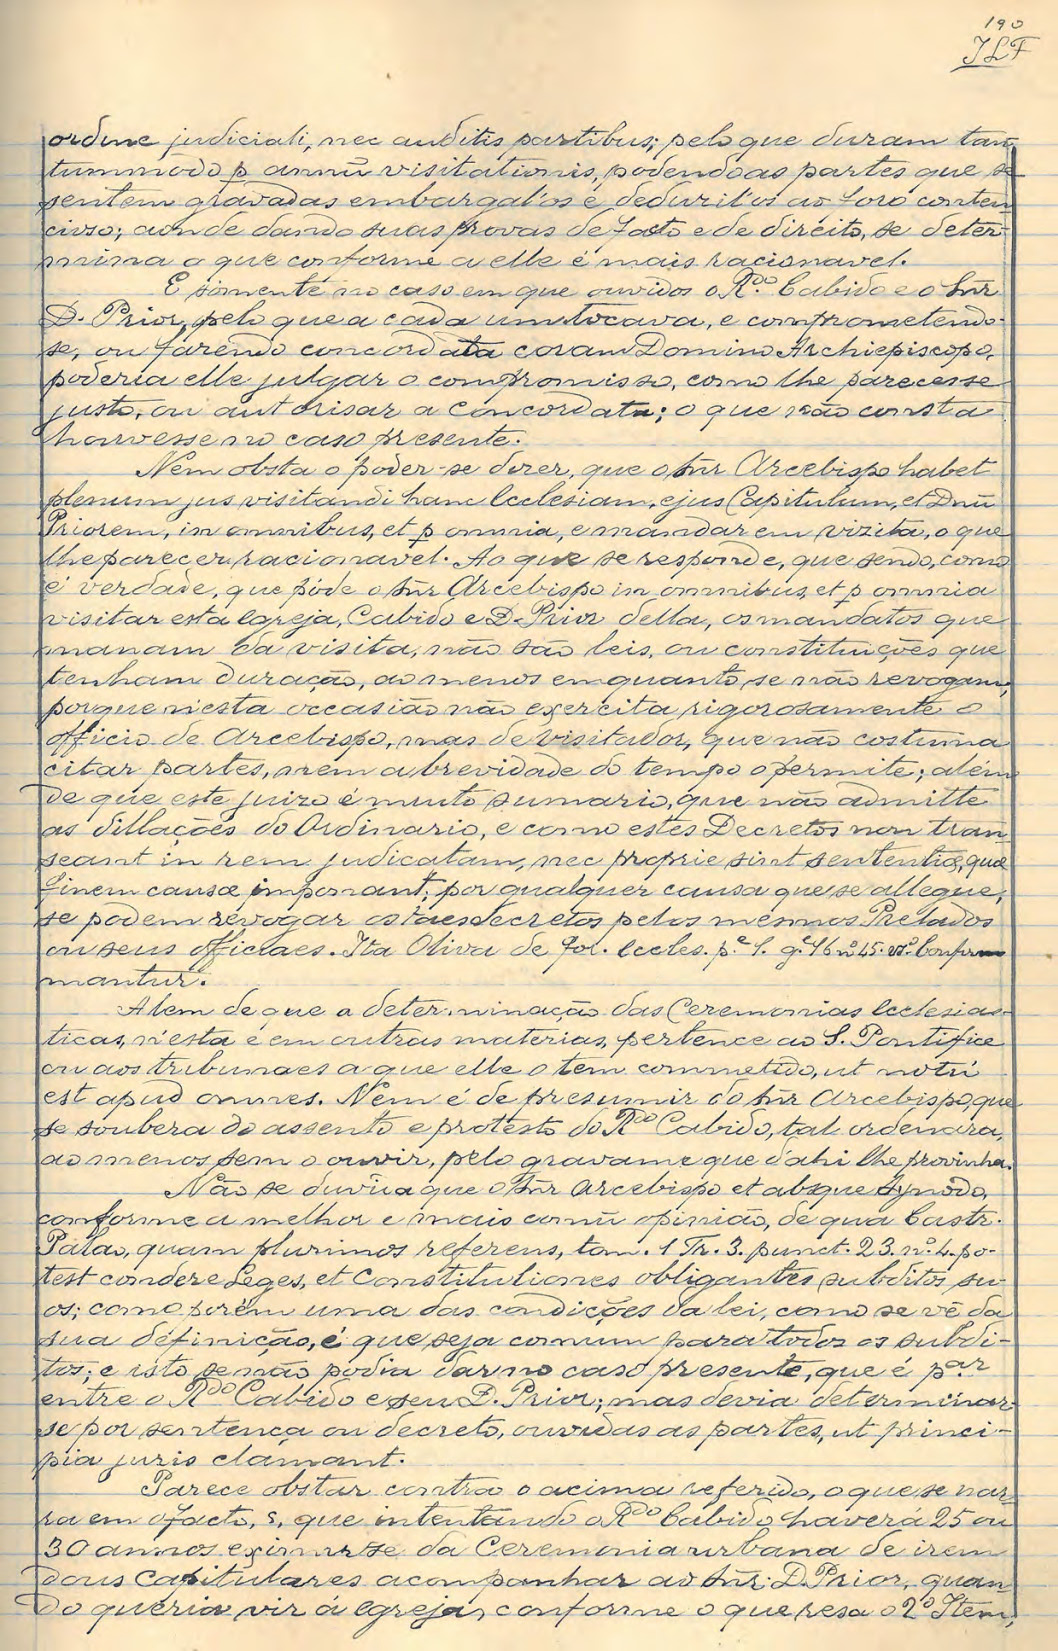 190
JLF
ordine judiciali, nec auditis partibus; pelo que duram tan-
tummodo p annũ visitationis, podendo as partes que se
sentem gravadas embargal'os e deduzil'os ao foro conten-
cioso; aonde dando suas provas de facto e de direito, se deter-
mina o que conforme a elle é mais racionavel.
E sómente no caso em que ouvidos o R.do Cabido e o Snr
D. Prior, pelo que a cada um tocava, e comprometendo-
se, ou fazendo concordata coram Domino Archiepiscopo,
poderia elle julgar o compromisso, como lhe parecesse
justo, ou autorisar a concordata; o que não consta
houvesse no caso presente.
Nem obsta o poder-se dizer, que o Snr Arcebispo habet
plenum jus visitandi hanc Ecclesiam, ejus Capitulum, et Dnũ
Priorem, in omnibus, et p omnia, e mandar em vizita, o que
lhe parecer racionavel. Ao que se responde, que sendo, como
é verdade, que póde o Snr Arcebispo in omnibus, et p omnia
visitar esta Egreja, Cabido e D. Prior della, os mandatos que
manam da visita, não são leis, ou constituições que
tenham duração, ao menos emquanto se não revogam,
porque n'esta occasião não exercita rigorosamente o
officio de Arcebispo, mas de Visitador, que não costuma
citar partes, nem a brevidade do tempo o permite; além
de que este juizo é muito sumario, que não admitte
as dillações do Ordinario, e como estes Decretos non tran-
seant in rem judicatam, nec proprie sint sententiæ, quæ
finem causæ imponant; por qualquer causa que se allegue,
se podem revogar os taes decretos pelos mesmos Prelados
ou seus officiaes. Ita Oliva de For. Eccles. p.e 1. q.e 46 nº 45. vº. Confir-
mantur.
Alem de que a determinação das Ceremonias Ecclesias-
ticas, n'esta e em outras materias, pertence ao S. Pontifice
ou aos tribunaes a que elle o tem commetido, ut notũ
est apud omnes. Nem é de presumir do Snr Arcebispo, que
se soubera do assento e protesto do R.do Cabido, tal ordenára,
ao menos sem o ouvir, pelo gravame que d'ahi lhe provinha.
Não se duvida que o Snr Arcebispo et absque Synodo,
conforme a melhor e mais comũ opinião, de qua Castr.
Palao, quam plurimos referens, tom. 1 Tr. 3. punct. 23. nº. 4. po-
test condere Leges, et Constitutiones obligantes subditos su-
os; como porém uma das condições da lei, como se vê da
sua definição, é que seja comum para todos os subdi-
tos; e isto se não podia dar no caso presente, que é p.ar
entre o R.do Cabido e seu D. Prior; mas devia determinar-
se por sentença ou decreto, ouvidas as partes, ut princi-
pia juris clamant.
Parece obstar contra o acima referido, o que se nar-
ra em o facto, s, que intentando o R.do Cabido haverá 25 ou
30 annos eximir-se da Ceremonia urbana de irem
dous Capitulares acompanhar ao Snr. D. Prior, quan-
do queria vir á Egreja, conforme o que resa o 2º Item,